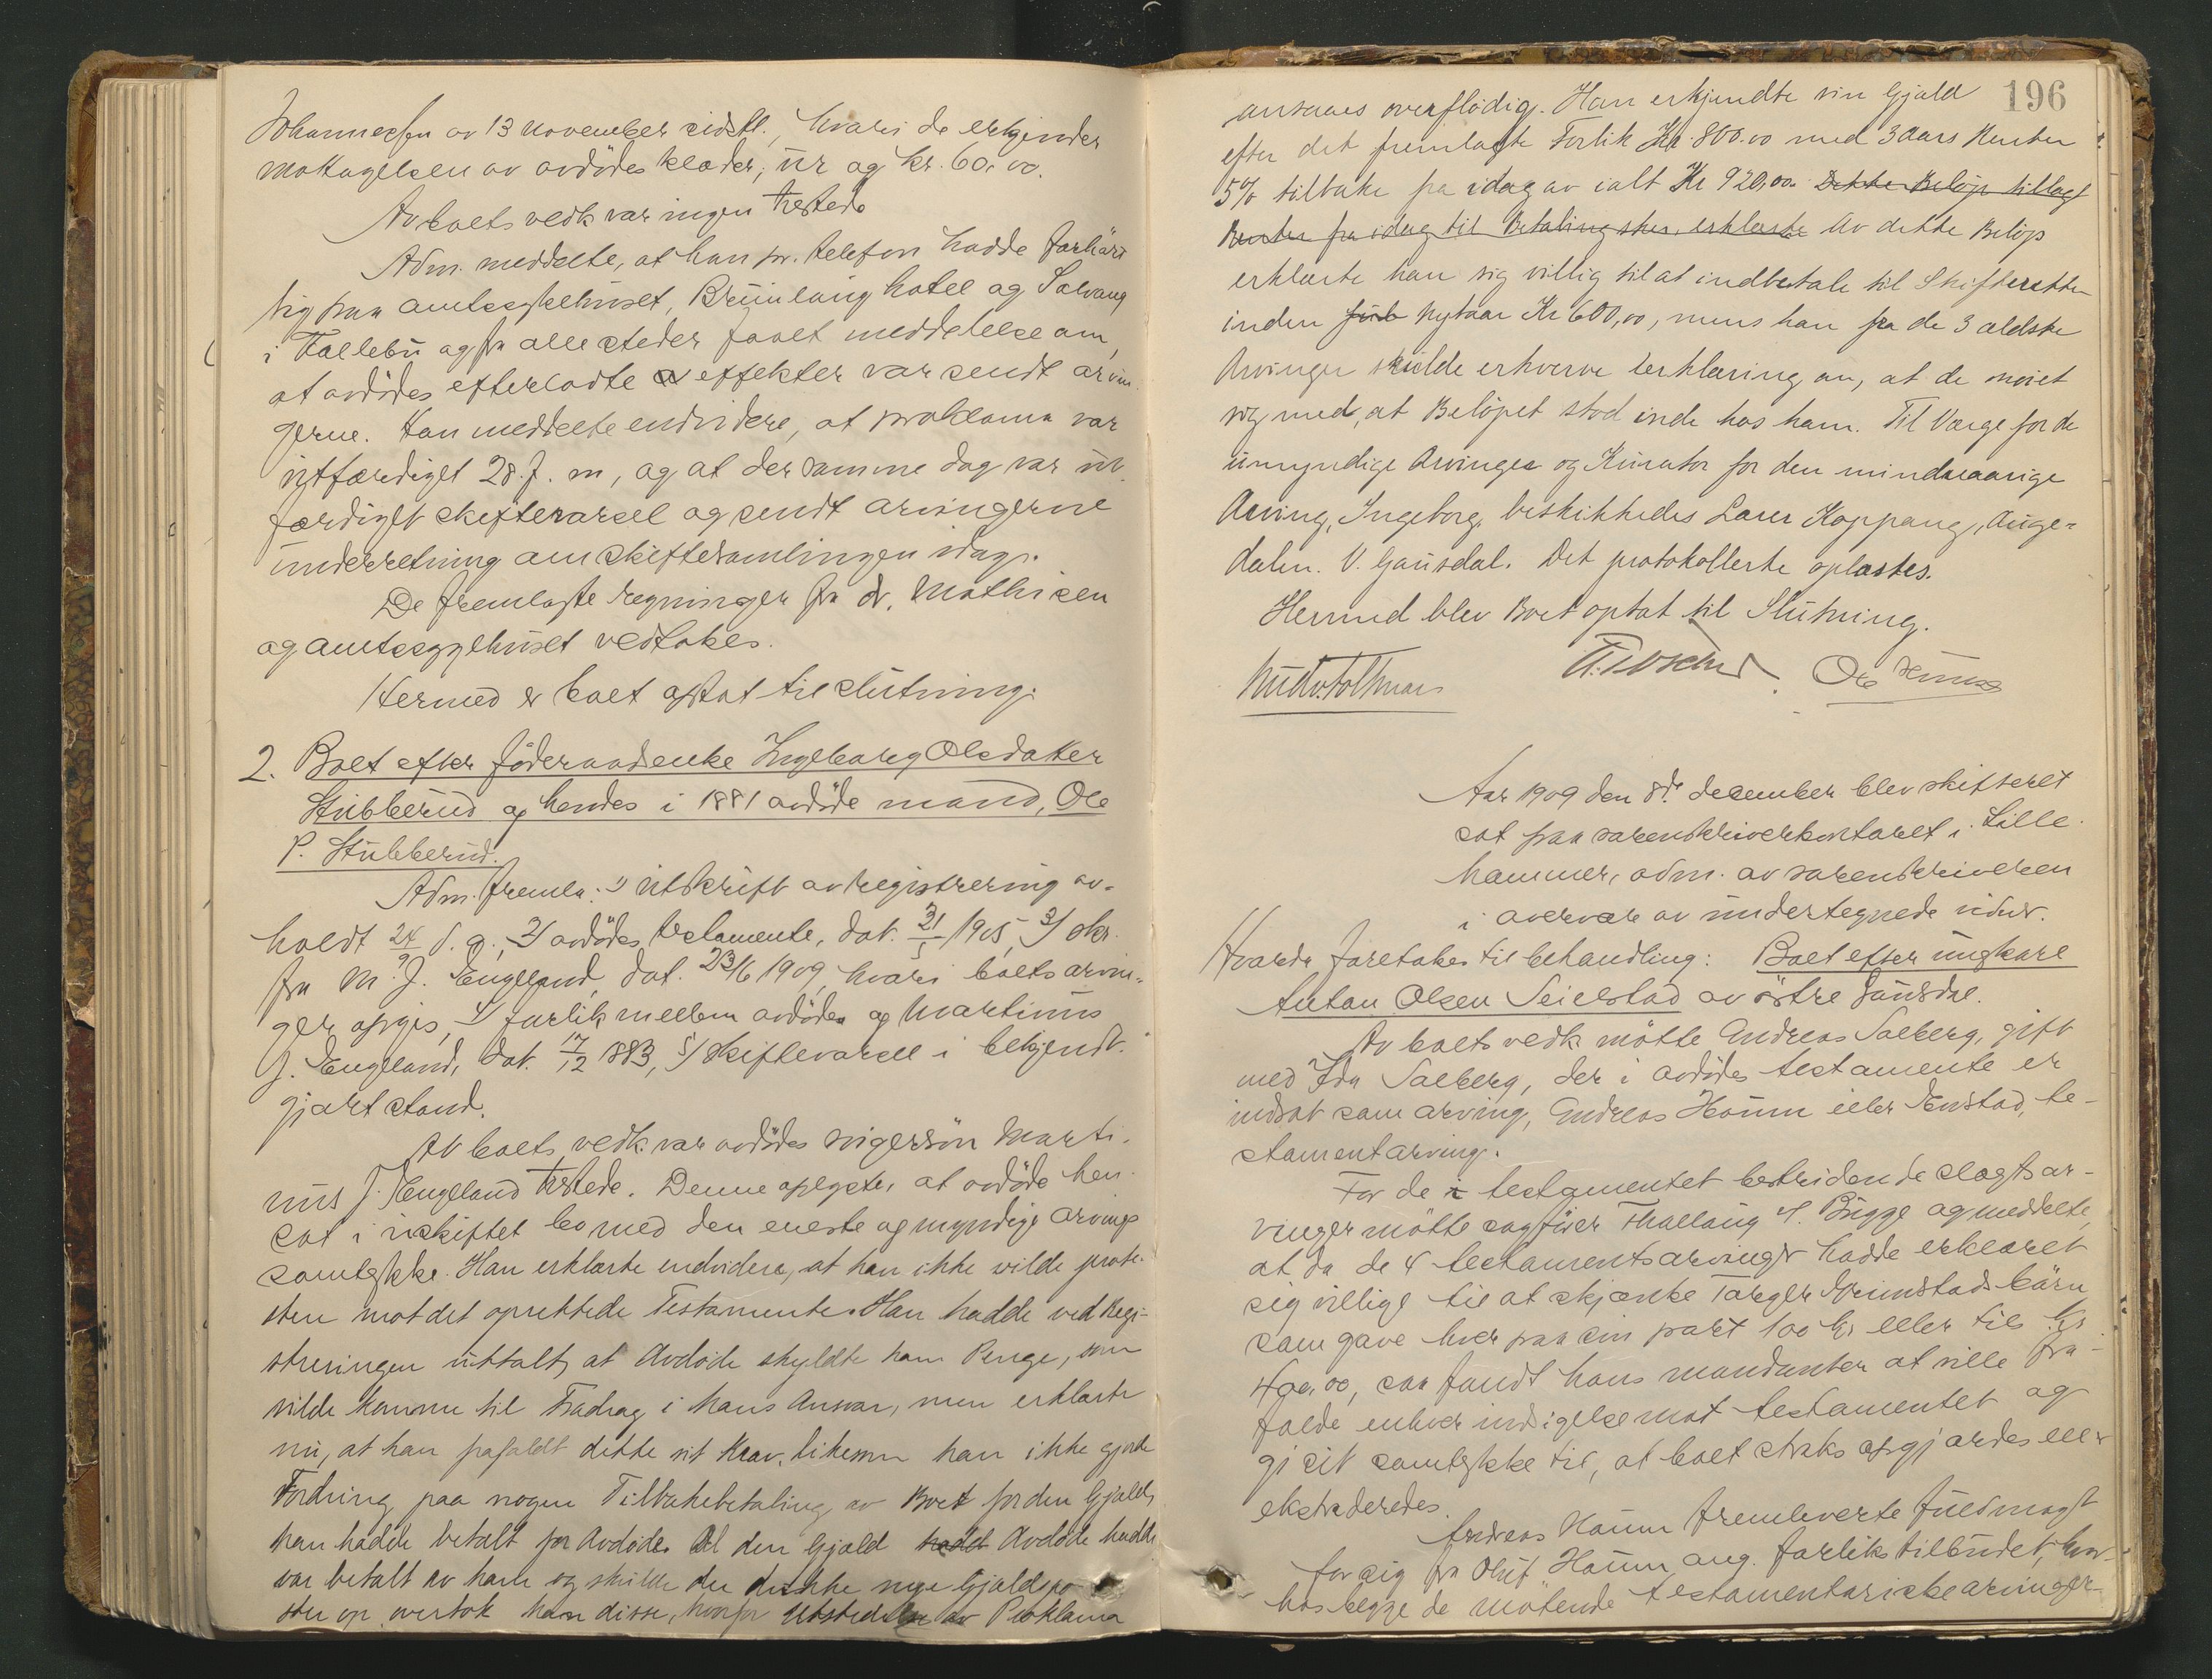 Johannessen av 13 november sidstl., hvori de erkjender
mottagelsen av avdödes klæder, ur og kr. 60.00.
Av boets vedk var ingen tilstede
Adm. meddelte, at han pr. telefon hadde forhört
sig paa amtssykehuset, Bruun hotel og Solvang
i Follebu og fra alle steder faaet meddelelse om,
at avdödes efterladte effekter var sendt arvin
gerne. Han meddelte endvidere, at proklama var
utfærdiget 28. f. m, og at der samme dag var ut
færdiget skiftevarsel og sendt arvingerne
underretning om skiftesamlingen idag.
De fremlagte regninger fra dr. Mathisen
og amtssygehuset vedtokes.
Hermed er boet optat til slutning.
2. Boet efter föderaadsenke Ingeborg Olsdatter
Stubberud og hendes i 1881 avdöde mand, Ole
P. Stubberud.
Adm. fremla: 1) utskrift av registrering av-
holdt 24/9 d. a., 2) avdödes testamente, dat. 31/5 1905, 3) skr.
fra M. J. Engeland, dat. 23/6 1909, hvori boets arvin-
ger opgis, 4) forlik mellem avdöde og Martinus
J. Engeland, dat. 17/12 1883, 5) skiftevarsel i bekjendt-
gjort stand.
Av boets vedk. var avdödes svigersön Marti-
nus J. Engeland tilstede. Denne oplyste, at avdöde hen
sat i uskiftet bo med den eneste og myndige arvings
samtykke. Han erklærte endvidere, at han ikke vilde prote-
stere mot det oprettede Testamente. Han hadde ved Regi-
streringen uttalt, at Avdöde skyldte ham Penge, som
vilde komme til Fradrag i hans Ansvar, men erklærte
nu, at han frafaldt dette sit Krav, likesom han ikke gjorde
Fordring paa nogen Tilbakebetaling av Boet for den Gjæld,
han hadde betalt for Avdöde. Al den Gjæld hadde Avdöde hadde
var betalt av ham og skulde der dukke nye Gjældspo
ster op overtok han disse, hvorfor Utstedelse av Proklama
196
ansaaes overflödig. Han erkjendte sin Gjæld
efter det fremlagte Forlik Kr. 800.00 med 3 Aars Renter
5% tilbake fra idag av ialt Kr 920,00. Dette Belöp tillagt
Renter fra idag til Betaling sker, erklærte Av dette Belöp
erklærte han sig villig til at indbetale til Skifteretten
inden Nytaar Kr 600,00, mens han fra de 3 ældste
Arvinger skulde erhverve Erklæring om, at de nöiet
sig med, at Belöpet stod inde hos ham. Til Værge for de
umyndige Arvinger og Kurator for den mindreaarige
Arving, Ingeborg, beskikkedes Lærer Koppang, Auge-
dalen. V. Gausdal. Det protokollerte oplæstes.
Hermed blev Boet optat til Slutning.
Aar 1909 den 8de december blev skifteret
sat paa sorenskriverkontoret i Lille
hammer, adm. av sorenskriveren
i overvær av undertegnede vidner.
Hvorda foretokes til behandling: Boet efter ungkarl
Anton Olsen Seielstad av östre Gausdal.
Av boets vedk mötte Andreas Solberg, gift
med Ida Solberg, der i avdödes testamente er
indsat som arving, Andreas Haum eller Enstad, te-
stamentarving.
For de testamentet bestridende slegtsar-
vinger mötte sagförer Thallaug v. Bugge og meddelte,
at da de 4 testamentsarvinger hadde erklæret
sig villige til at skjænke Torger Grimstads börn
som gave hver paa sin part 100 kr eller tils. kr
400,00, saa fandt hans mandanter at ville fra-
falde enhver indsigelse mot testamentet og
gi sit samtykke til, at boet straks opgjordes eller
ekstraderedes.
Andreas Haum fremleverte fuldmagt
for sig fra Oluf Haum ang. forlikstilbudet, hvor
hos begge de mötende testamentariske arvinger